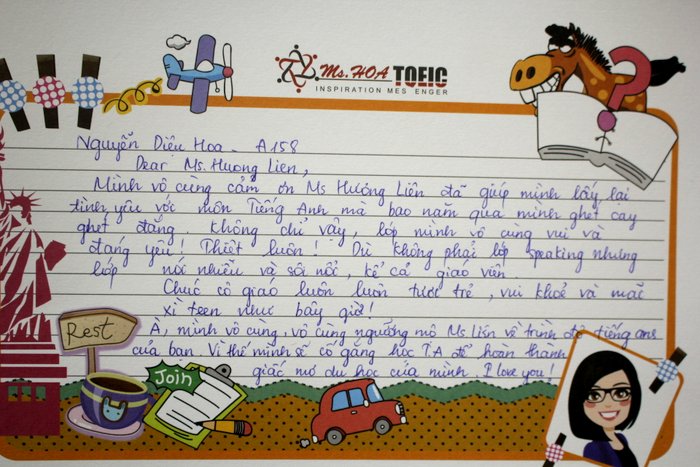 Ms. HOA TOEIC
INSPIRATION MES ENGER
Nguyễn Diệu Hoa - A158
Dear Ms. Huong Lien,
Mình vô cùng cảm ơn Ms Hương Liên đã giúp mình lấy lại
tình yêu với môn Tiếng Anh mà bao năm qua mình ghét cay
ghét đắng. Không chỉ vậy, lớp mình vô cùng vui và
đáng yêu! Thiệt luôn! Dù không phải lớp speaking nhưng
lớp nói nhiều và sôi nổi, kể cả giáo viên
Chúc cô giáo luôn luôn tươi trẻ, vui khoẻ và mãi
xì teen như bây giờ!
A, mình vô cùng, vô cùng ngưỡng mộ Ms Liên về trình độ tiếng anh
của bạn. Vì thế mình sẽ cố gắng học T.A để hoàn thành
giấc mơ du học của mình. I love you!
Rest
Join